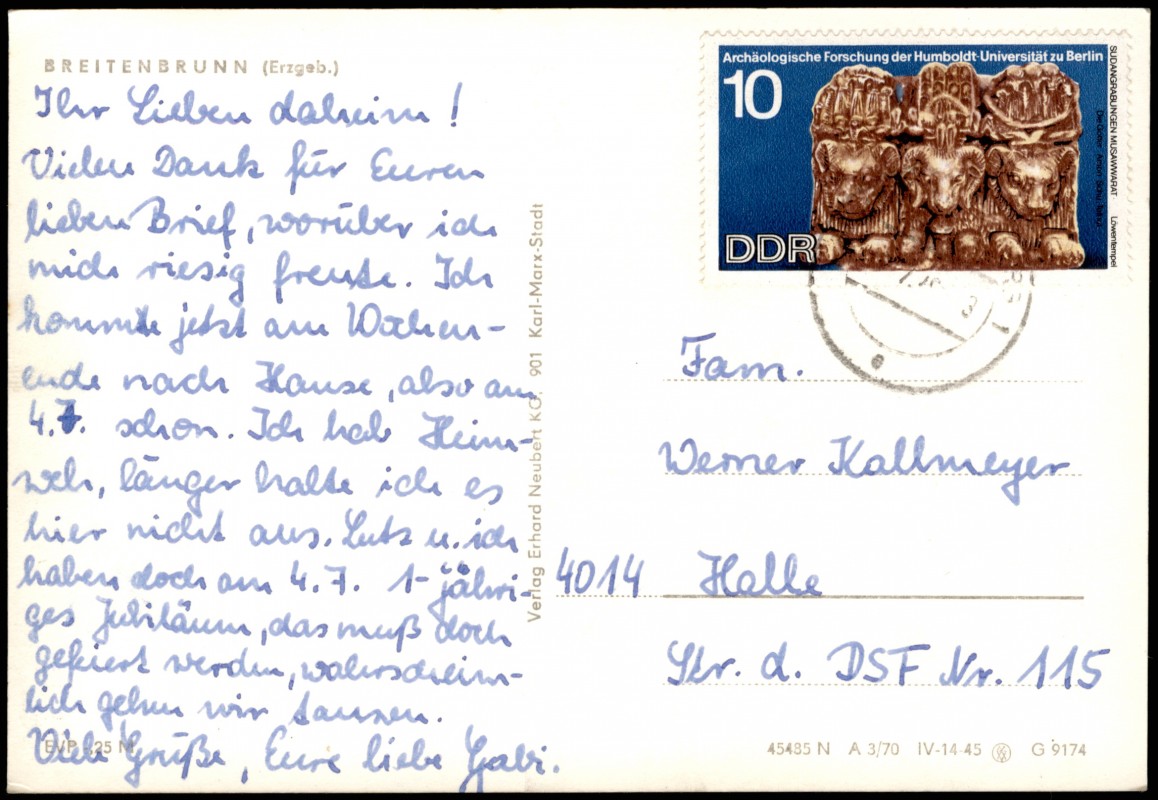 BREITENBRUNN (Erzgeb.)
Ihr Lieben daheim!
Vielen Dank für Euren
lieben Brief, worüber ich
mich riesig freute. Ich
komme jetzt am Wochen-
ende nach Hause, also am
4.7. schon. Ich hab Heim-
weh, länger halte ich es
hier nicht aus. Lutz u. ich
haben doch am 4.7. 1-jähri-
ges Jubiläum, das muß doch
gefeiert werden, wahrschein-
lich gehen wir tanzen.
Viele Grüße, Eure liebe Gabi.
EVP -,25 M
Verlag Erhard Neubert KG, 901 Karl-Marx-Stadt
Archäologische Forschung der Humboldt-Universität zu Berlin
10
DDR
SUDANGRABUNGEN MUSAWWARAT Löwentempel
Fam.
Werner Kallmeyer
4014 Halle
Str. d. DSF Nr. 115
45485 N A 3/70 IV-14-45 G 9174